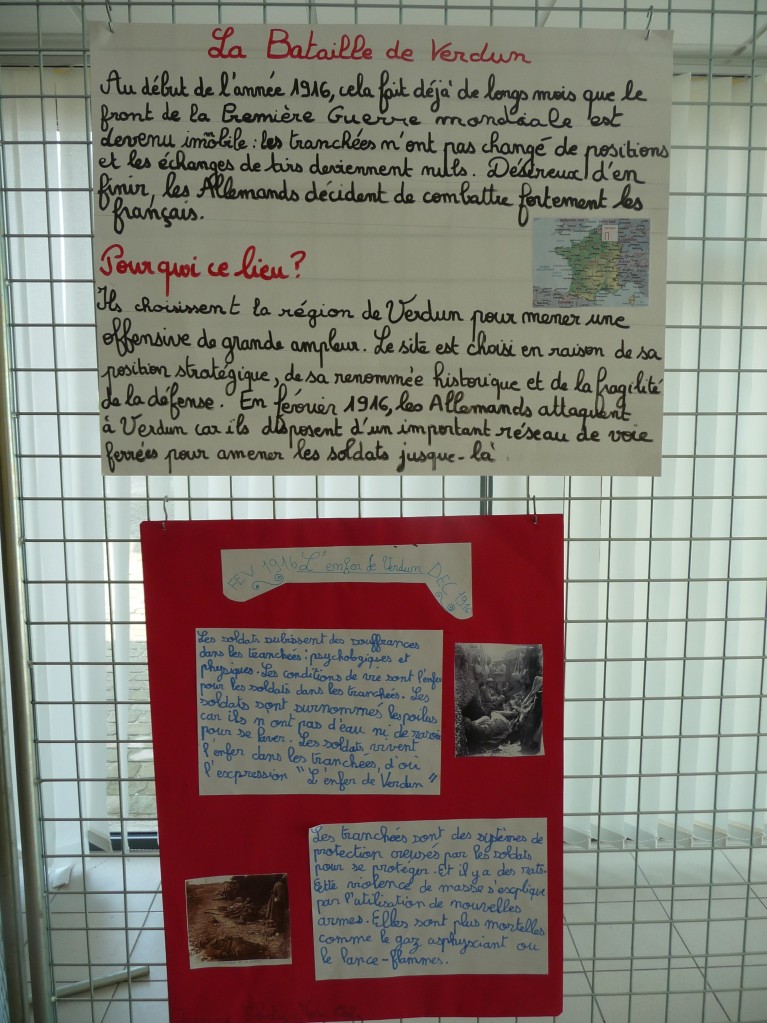 La Bataille de Verdun
Au début de l'année 1916, cela fait déjà de longs mois que le
front de la Première Guerre mondiale est
devenu imobile : les tranchées n'ont pas changé de positions
et les échanges de tirs deviennent nuls. Désireux d'en
finir, les Allemands décident de combattre fortement les
français.
Pourquoi ce lieu ?
Ils choisissent la région de Verdun pour mener une
offensive de grande ampleur. Le site est choisi en raison de sa
position stratégique, de sa renommée historique et de la fragilité
de la défense. En février 1916, les Allemands attaquent
à Verdun car ils disposent d'un important réseau de voie
ferrées pour amener les soldats jusque-là.
FEV 1916 L'enfer de Verdun DEC 1916
Les soldats subissent des souffrances
dans les tranchées : psychologiques et
physiques. Les conditions de vie sont l'enfer
pour les soldats dans les tranchées. Les
soldats sont surnommés les poilus
car ils n'ont pas d'eau ni de rasoir
pour se laver. Les soldats vivent
l'enfer dans les tranchées, d'où
l'expression "L'enfer de Verdun"
Les tranchées sont des systèmes de
protection creusés par les soldats
pour se protéger. Et il y a des rats.
Cette violence de masse s'explique
par l'utilisation de nouvelles
armes. Elles sont plus mortelles
comme le gaz asphysciant ou
le lance-flammes.